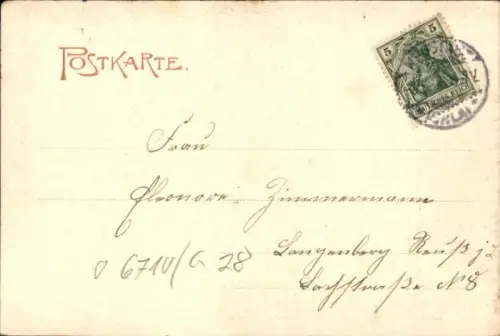 POSTKARTE.
5 5
Frau
Eleonore Zimmermann
Langenberg Reuß j. L.
6710/G 28
N 8